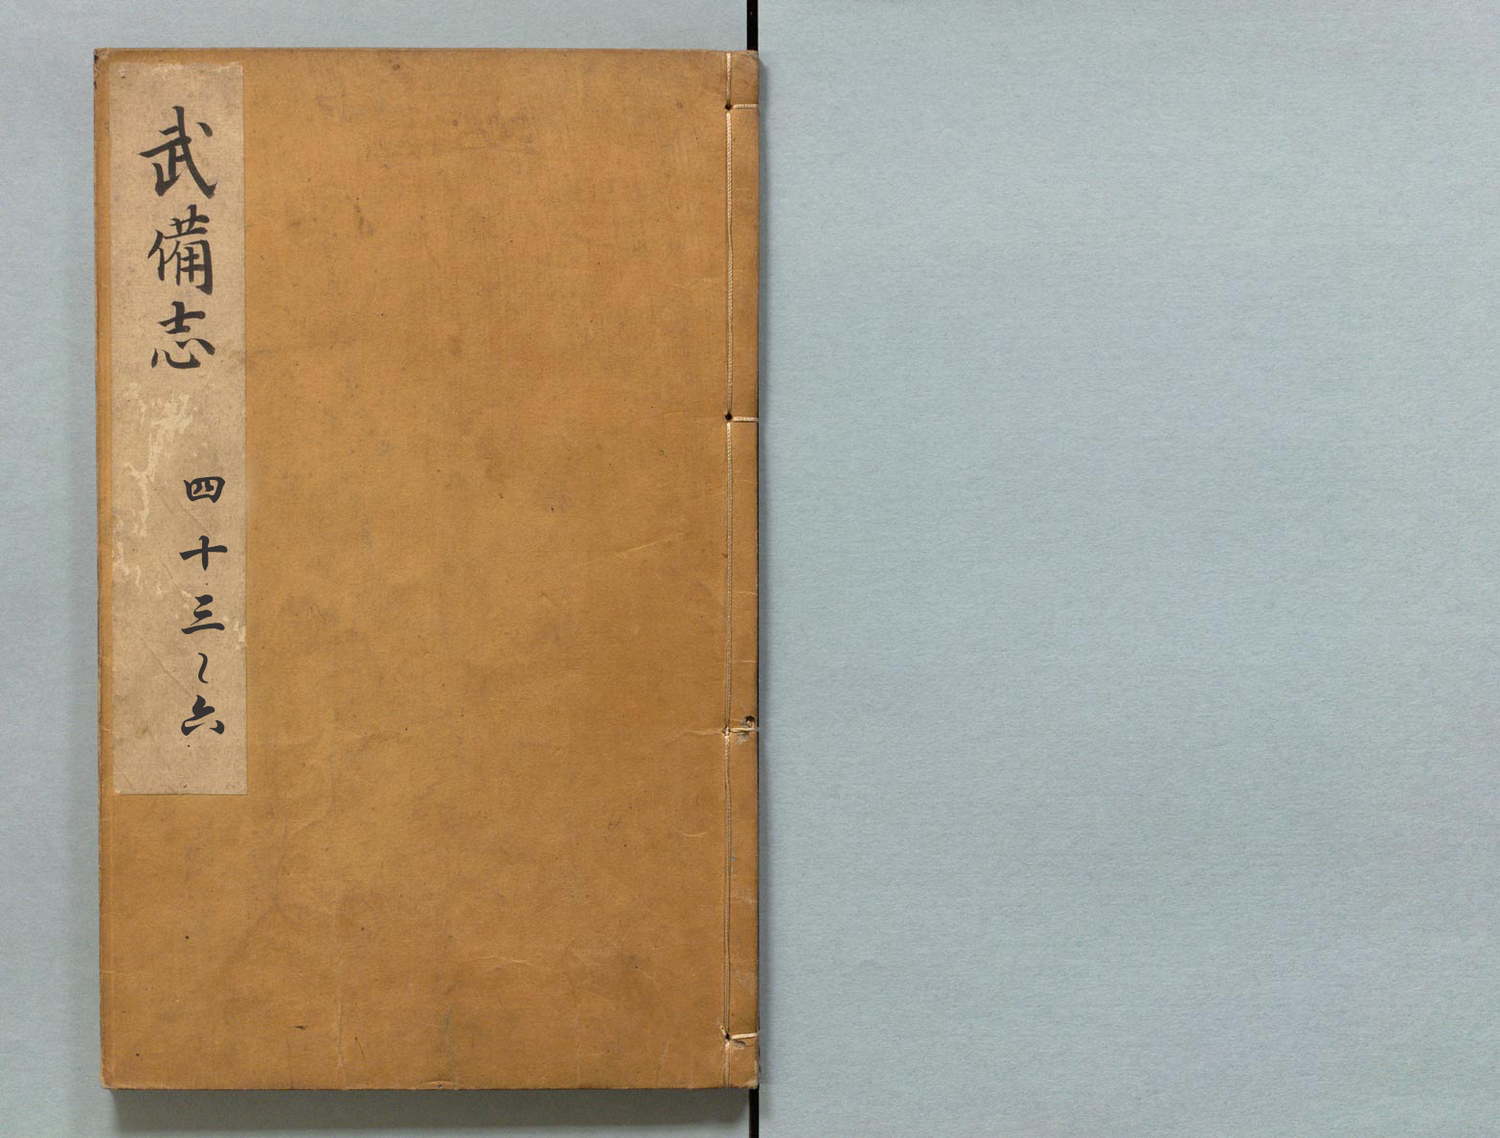 武備志
四十三〜六